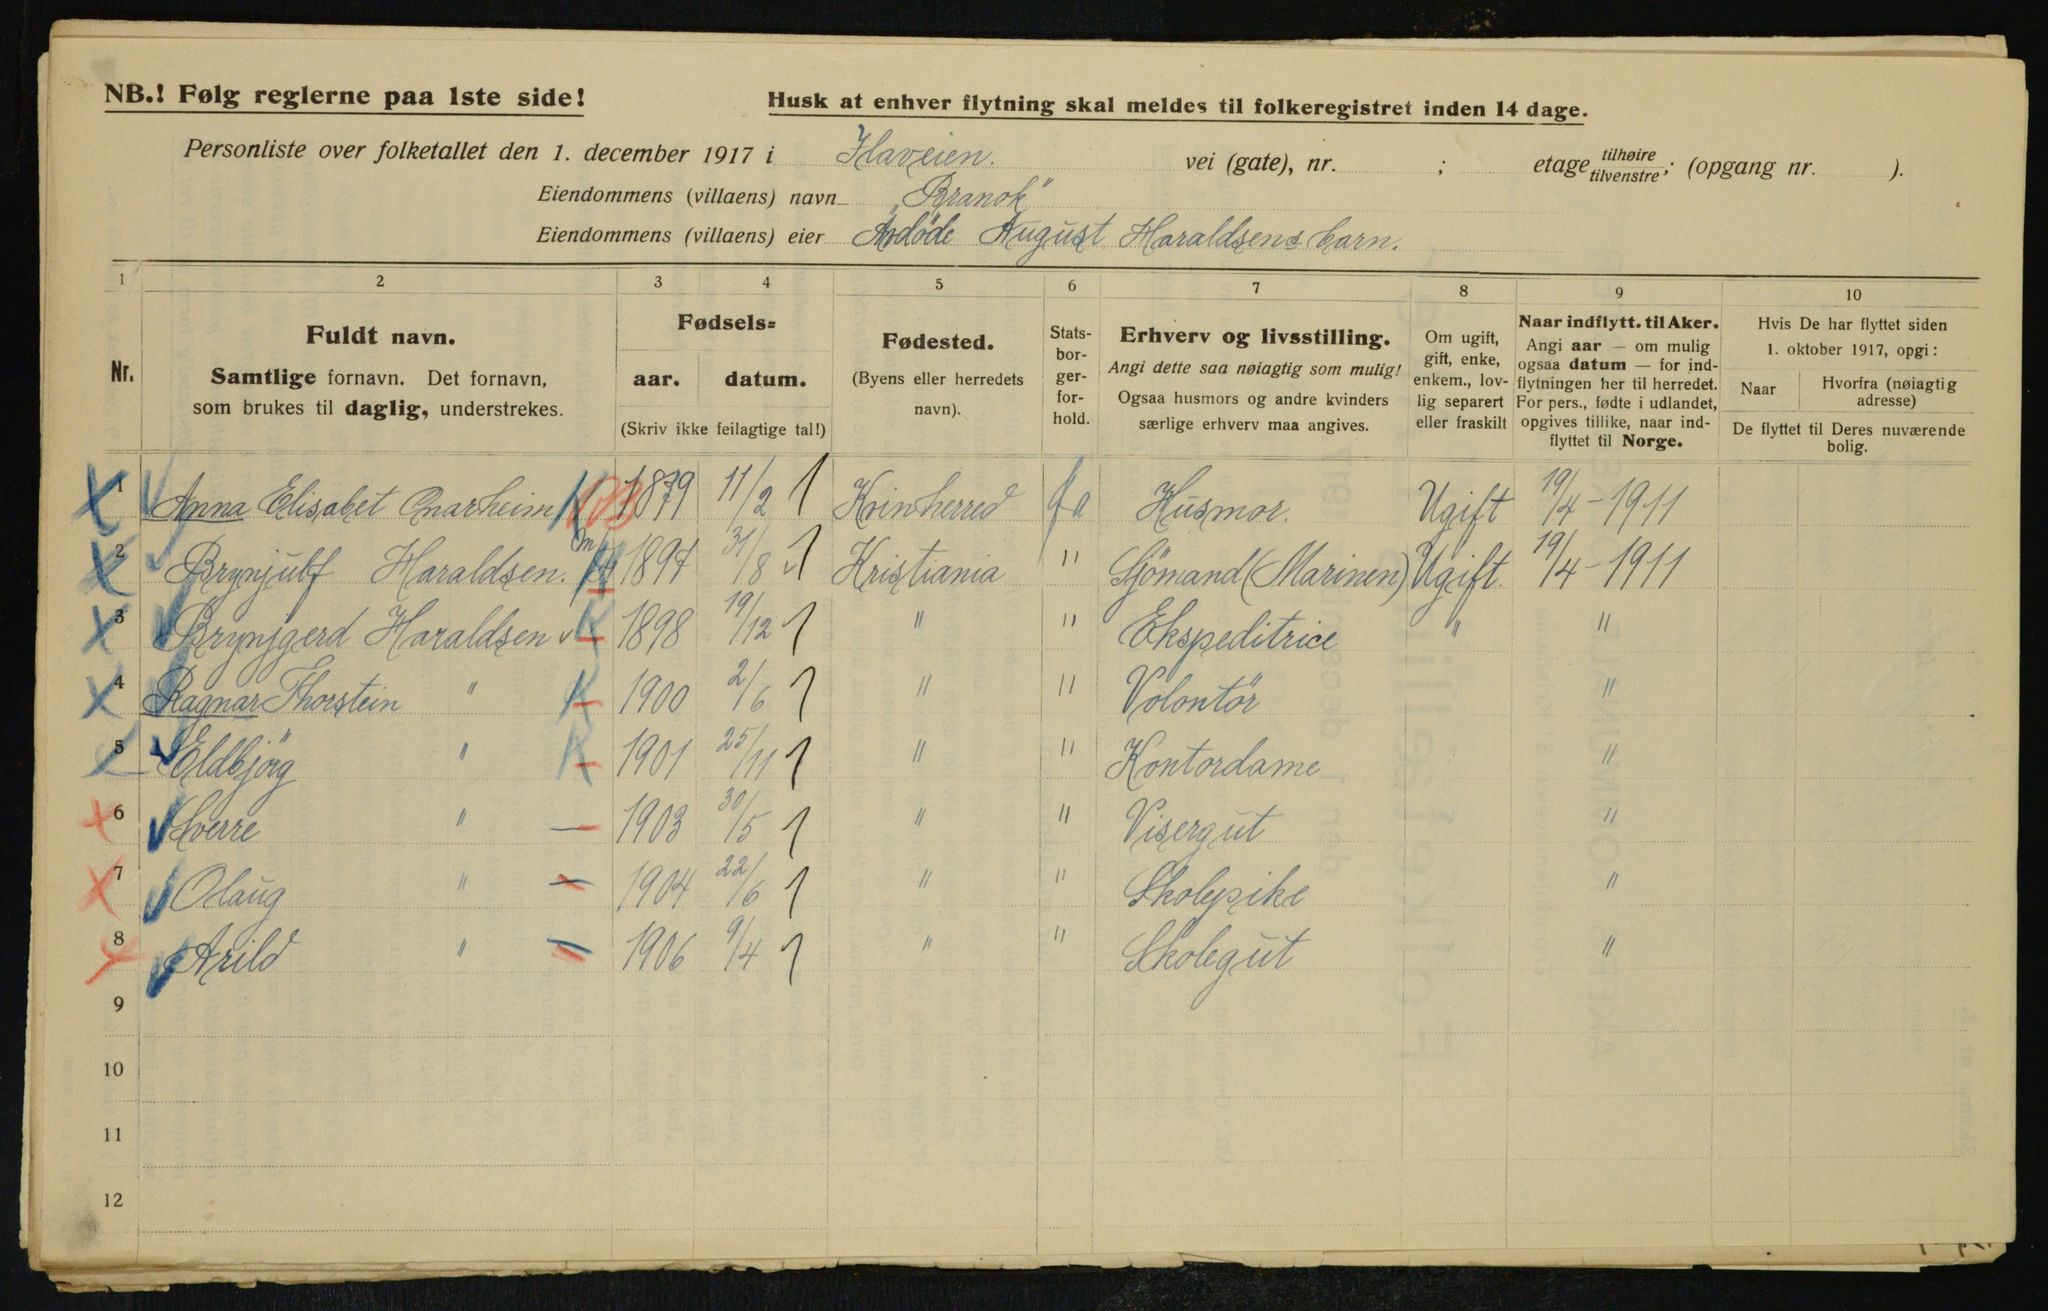 NB.! Følg reglerne paa 1ste side!
Husk at enhver flytning skal meldes til folkeregistret inden 14 dage.
Personliste over folketallet den 1. december 1917 i Haveien. vei (gate), nr. ; etage tilhøire tilvenstre; (opgang nr. ).
Eiendommens (villaens) navn „Branok"
Eiendommens (villaens) eier Avdöde August Haraldsens barn.
1 2 3 4 5 6 7 8 9 10
Nr.
Fuldt navn.
Samtlige fornavn. Det fornavn,
som brukes til daglig, understrekes.
Fødsels=
aar. datum.
(Skriv ikke feilagtige tal!)
Fødested.
(Byens eller herredets
navn).
Stats-
bor-
ger-
for-
hold.
Erhverv og livsstilling.
Angi dette saa nøiagtig som mulig!
Ogsaa husmors og andre kvinders
særlige erhverv maa angives.
Om ugift,
gift, enke,
enkem., lov-
lig separert
eller fraskilt
Naar indflytt. til Aker.
Angi aar — om mulig
ogsaa datum — for ind-
flytningen her til herredet.
For pers., fødte i udlandet,
opgives tillike, naar ind-
flyttet til Norge.
Hvis De har flyttet siden
1. oktober 1917, opgi:
Naar
Hvorfra (nøiagtig
adresse)
De flyttet til Deres nuværende
bolig.
1 Anna Elisabet Onarheim K 1879 11/2 Kvinherred Husmor. Ugift 19/4 - 1911
2 Brynjulf Haraldsen. m 1897 31/8 Kristiania " Sjömand (Marinen) Ugift. 19/4 - 1911
3 Brynjgerd Haraldsen K 1898 19/12 " " Ekspeditrice " "
4 Ragnar Thorstein " K 1900 2/6 " " Volontör "
5 Eldbjörg " K 1901 25/11 " " Kontordame "
6 Sverre " 1903 30/5 " " Visergut "
7 Olaug " 1904 22/6 " " Skolepike "
8 Arild " 1906 9/4 " " Skolegut "
9
10
11
12